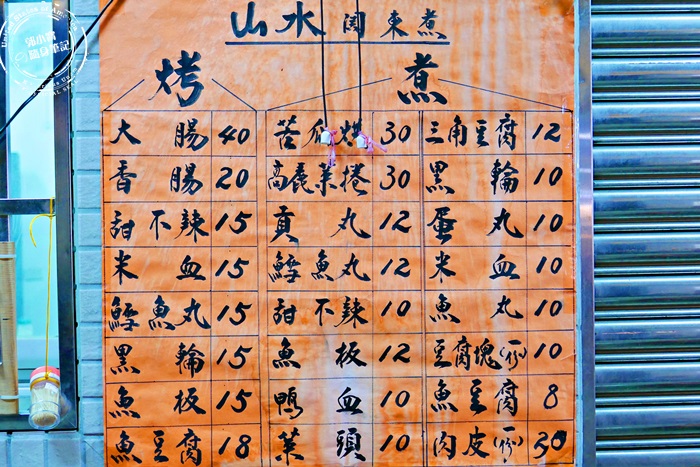 山水 関東煮
烤 煮
大腸 40 苦瓜 30 三角豆腐 12
香腸 20 高麗菜捲 30 黑輪 10
甜不辣 15 貢丸 12 蛋丸 10
米血 15 鱈魚丸 12 米血 10
鱈魚丸 15 甜不辣 10 魚丸 10
黑輪 15 魚板 12 豆腐塊(一份) 10
魚板 15 鴨血 10 魚豆腐 8
魚豆腐 18 菜頭 10 肉皮(一份) 30